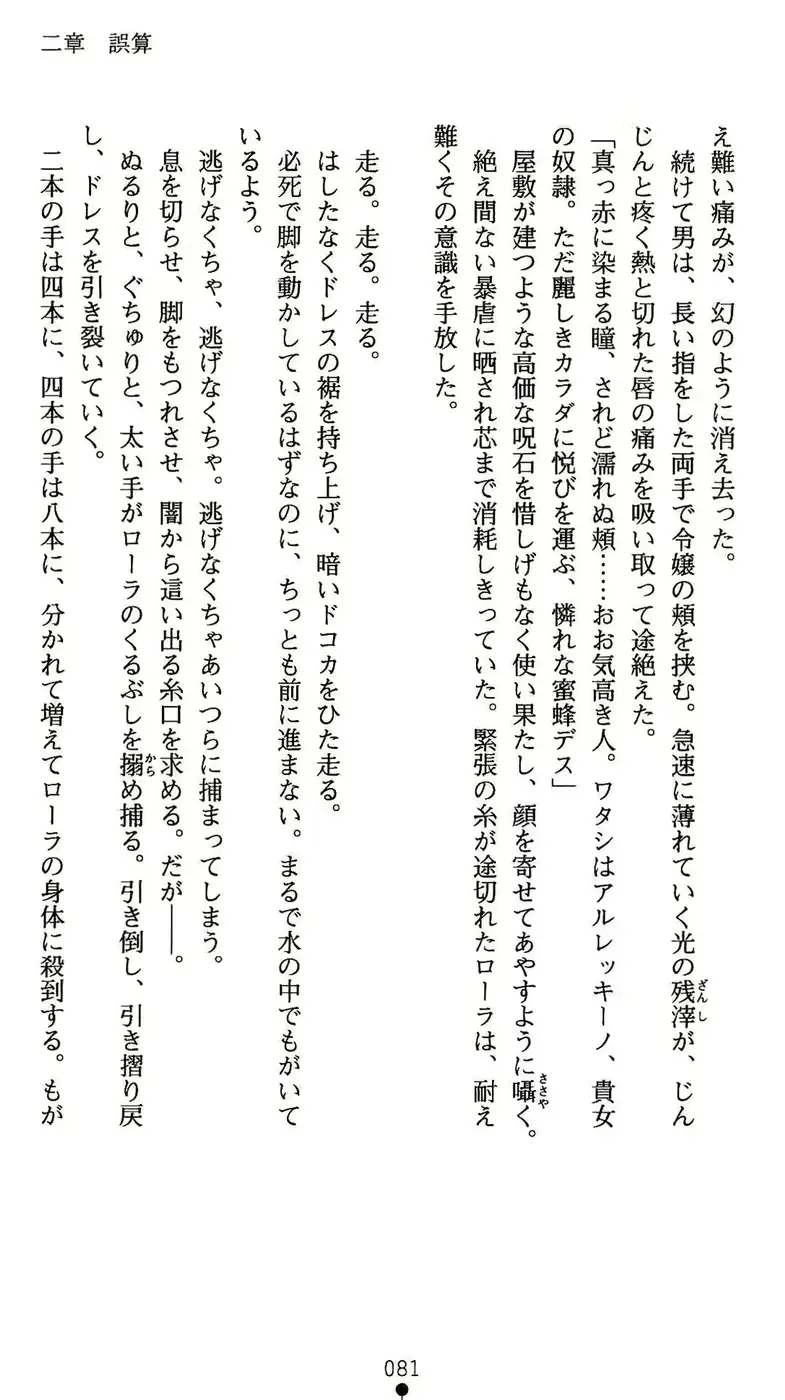 二章　誤算
え難い痛みが、幻のように消え去った。
続けて男は、長い指をした両手で令嬢の頬を挟む。急速に薄れていく光の残滓が、じん
じんと疼く熱と切れた唇の痛みを吸い取って途絶えた。
「真っ赤に染まる瞳、されど濡れぬ頬……おお気高き人。ワタシはアルレッキーノ、貴女
の奴隷。ただ麗しきカラダに悦びを運ぶ、憐れな蜜蜂デス」
屋敷が建つような高価な呪石を惜しげもなく使い果たし、顔を寄せてあやすように囁く。
絶え間ない暴虐に晒され芯まで消耗しきっていた。緊張の糸が途切れたローラは、耐え
難くその意識を手放した。
走る。走る。走る。
はしたなくドレスの裾を持ち上げ、暗いドコカをひた走る。
必死で脚を動かしているはずなのに、ちっとも前に進まない。まるで水の中でもがいて
いるよう。
逃げなくちゃ、逃げなくちゃ。逃げなくちゃあいつらに捕まってしまう。
息を切らせ、脚をもつれさせ、闇から這い出る糸口を求める。だが――。
ぬるりと、ぐちゅりと、太い手がローラのくるぶしを搦め捕る。引き倒し、引き摺り戻
し、ドレスを引き裂いていく。
二本の手は四本に、四本の手は八本に、分かれて増えてローラの身体に殺到する。もが
081